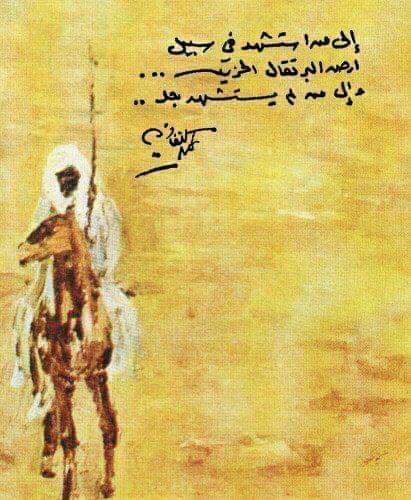 إلى من استشهد في سبيل
أرض البرتقال الحزين ...
وإلى من لم يستشهد بعد ..
غسان كنفاني